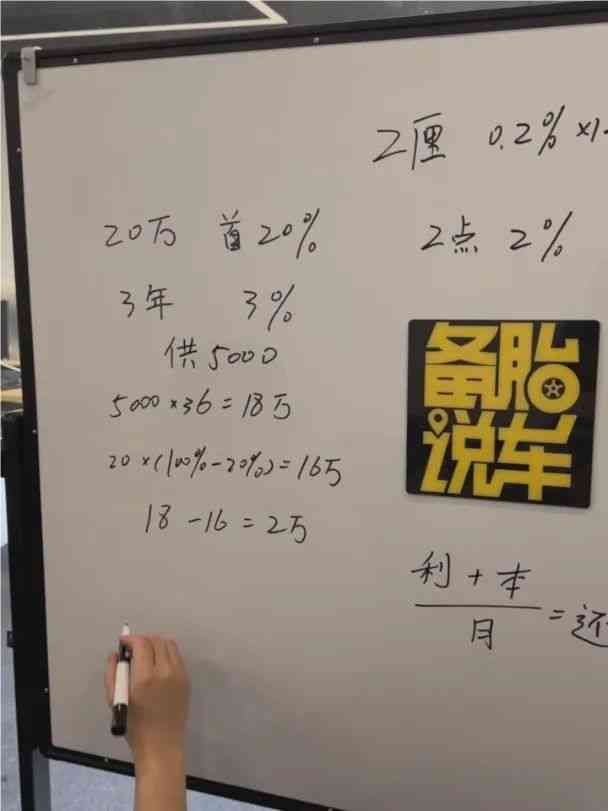 2厘 0.2% ×1
20万 首20%
2点 2%
3年 3%
供5000
5000×36=18万
20×(100%-20%)=16万
18-16=2万
备胎
说车
利+本
月
=还